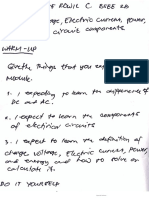 F ROWIL C. BSEE 2B
ge, Electric Current, power,
circuit components
WARM-UP
things that you ex
Module.
1. I expecting to learn the differences of
DC and AC.
2. I expect to learn the components
of electrical circuits
3. I expect to learn the definition of
charge, Voltage, Electric current, Power,
and energy and how to solve or
calculate it.
DO IT YOURSELF